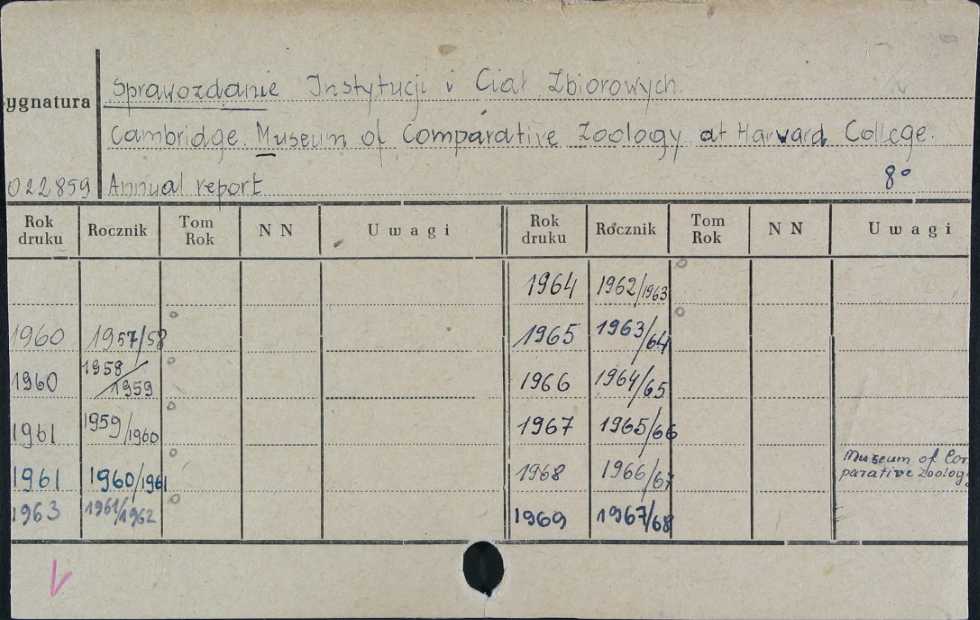 Sprawozdanie Instytucji i Ciał Zbiorowych.
ygnatura
Cambridge. Museum of Comparative Zoology at Harvard College.
022859 Annual report 8°
Rok druku Rocznik Tom Rok NN Uwagi Rok druku Rocznik Tom Rok NN Uwagi
1964 1962/1963
1960 1957/58 1965 1963/64
1960 1958/1959 1966 1964/65
1961 1959/1960 1967 1965/66
1961 1960/1961 1968 1966/67 Museum of Com
parative Zoolog
1963 1961/1962 1969 1967/68